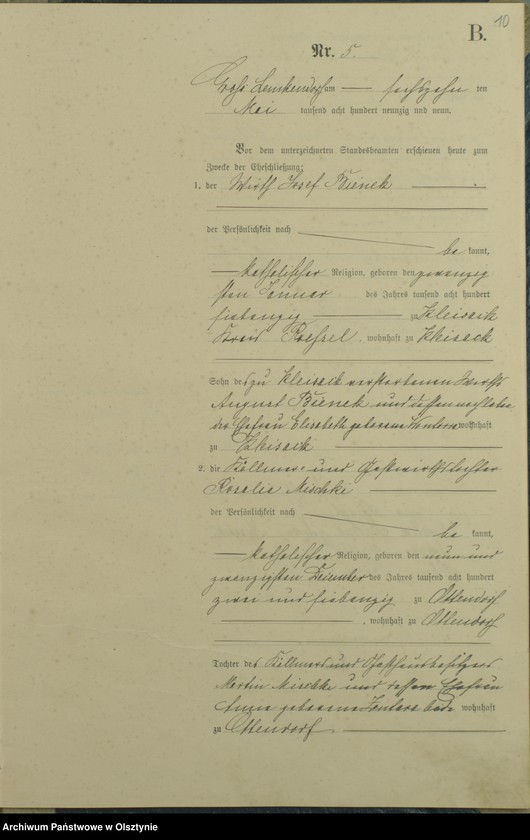 10
B.
Nr. 5.
Groß Lemkendorf am — sechszehn ten
Mai tausend acht hundert neunzig und neun.
Vor dem unterzeichneten Standesbeamten erschienen heute zum
Zwecke der Eheschließung:
1. der Wirth Josef Bienek
der Persönlichkeit nach
be kannt,
katholischer Religion, geboren den zwanzig
sten Januar des Jahres tausend acht hundert
siebenzig zu Kleisack
Kreis Roessel, wohnhaft zu Kleisack
Sohn des zu Kleisack verstorbenen Wirths
August Bienek und dessen noch lebender
Ehefrau Elisabeth geborene wohnhaft
zu Kleisack
2. die Köllmer- und Gastwirthstochter
Rosalie Mischke
der Persönlichkeit nach
be kannt,
katholischer Religion, geboren den neun und
zwanzigsten des Jahres tausend acht hundert
zwei und siebenzig zu Ottendorf
, wohnhaft zu Ottendorf
Tochter des Köllmers und Gasthausbesitzers
Martin Mischke und dessen Ehefrau
geborene beide wohnhaft
zu Ottendorf
Archiwum Państwowe w Olsztynie